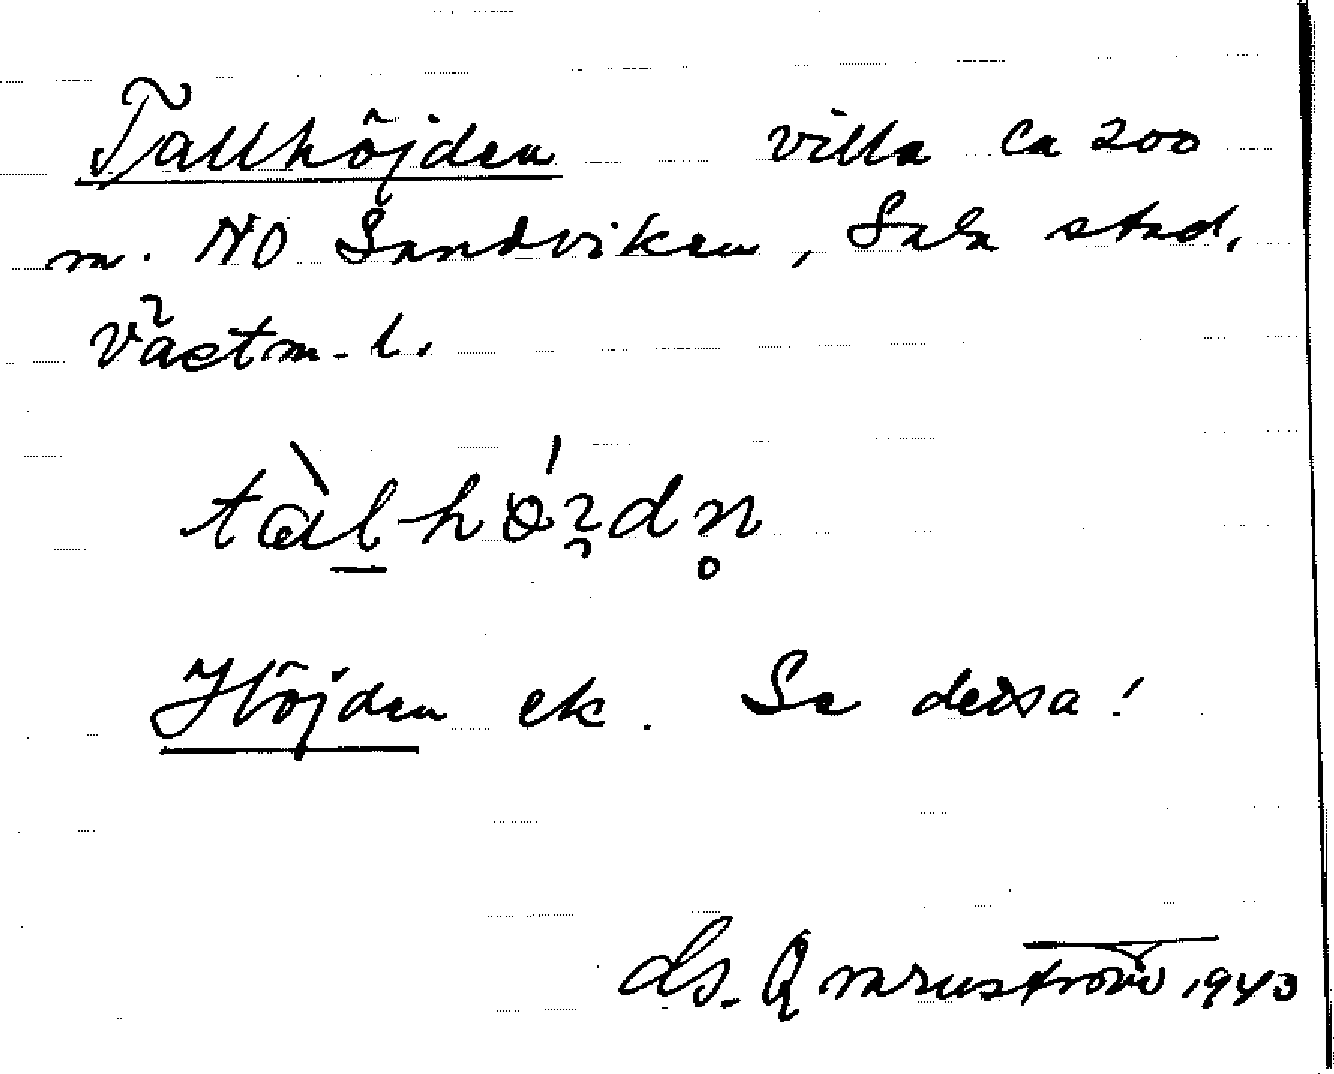 Tallhöjden villa ca 200
m. NO Sandviken, Sala stad,
Västm. l.
Höjden ek. Se dessa!
Qvarnström 1943